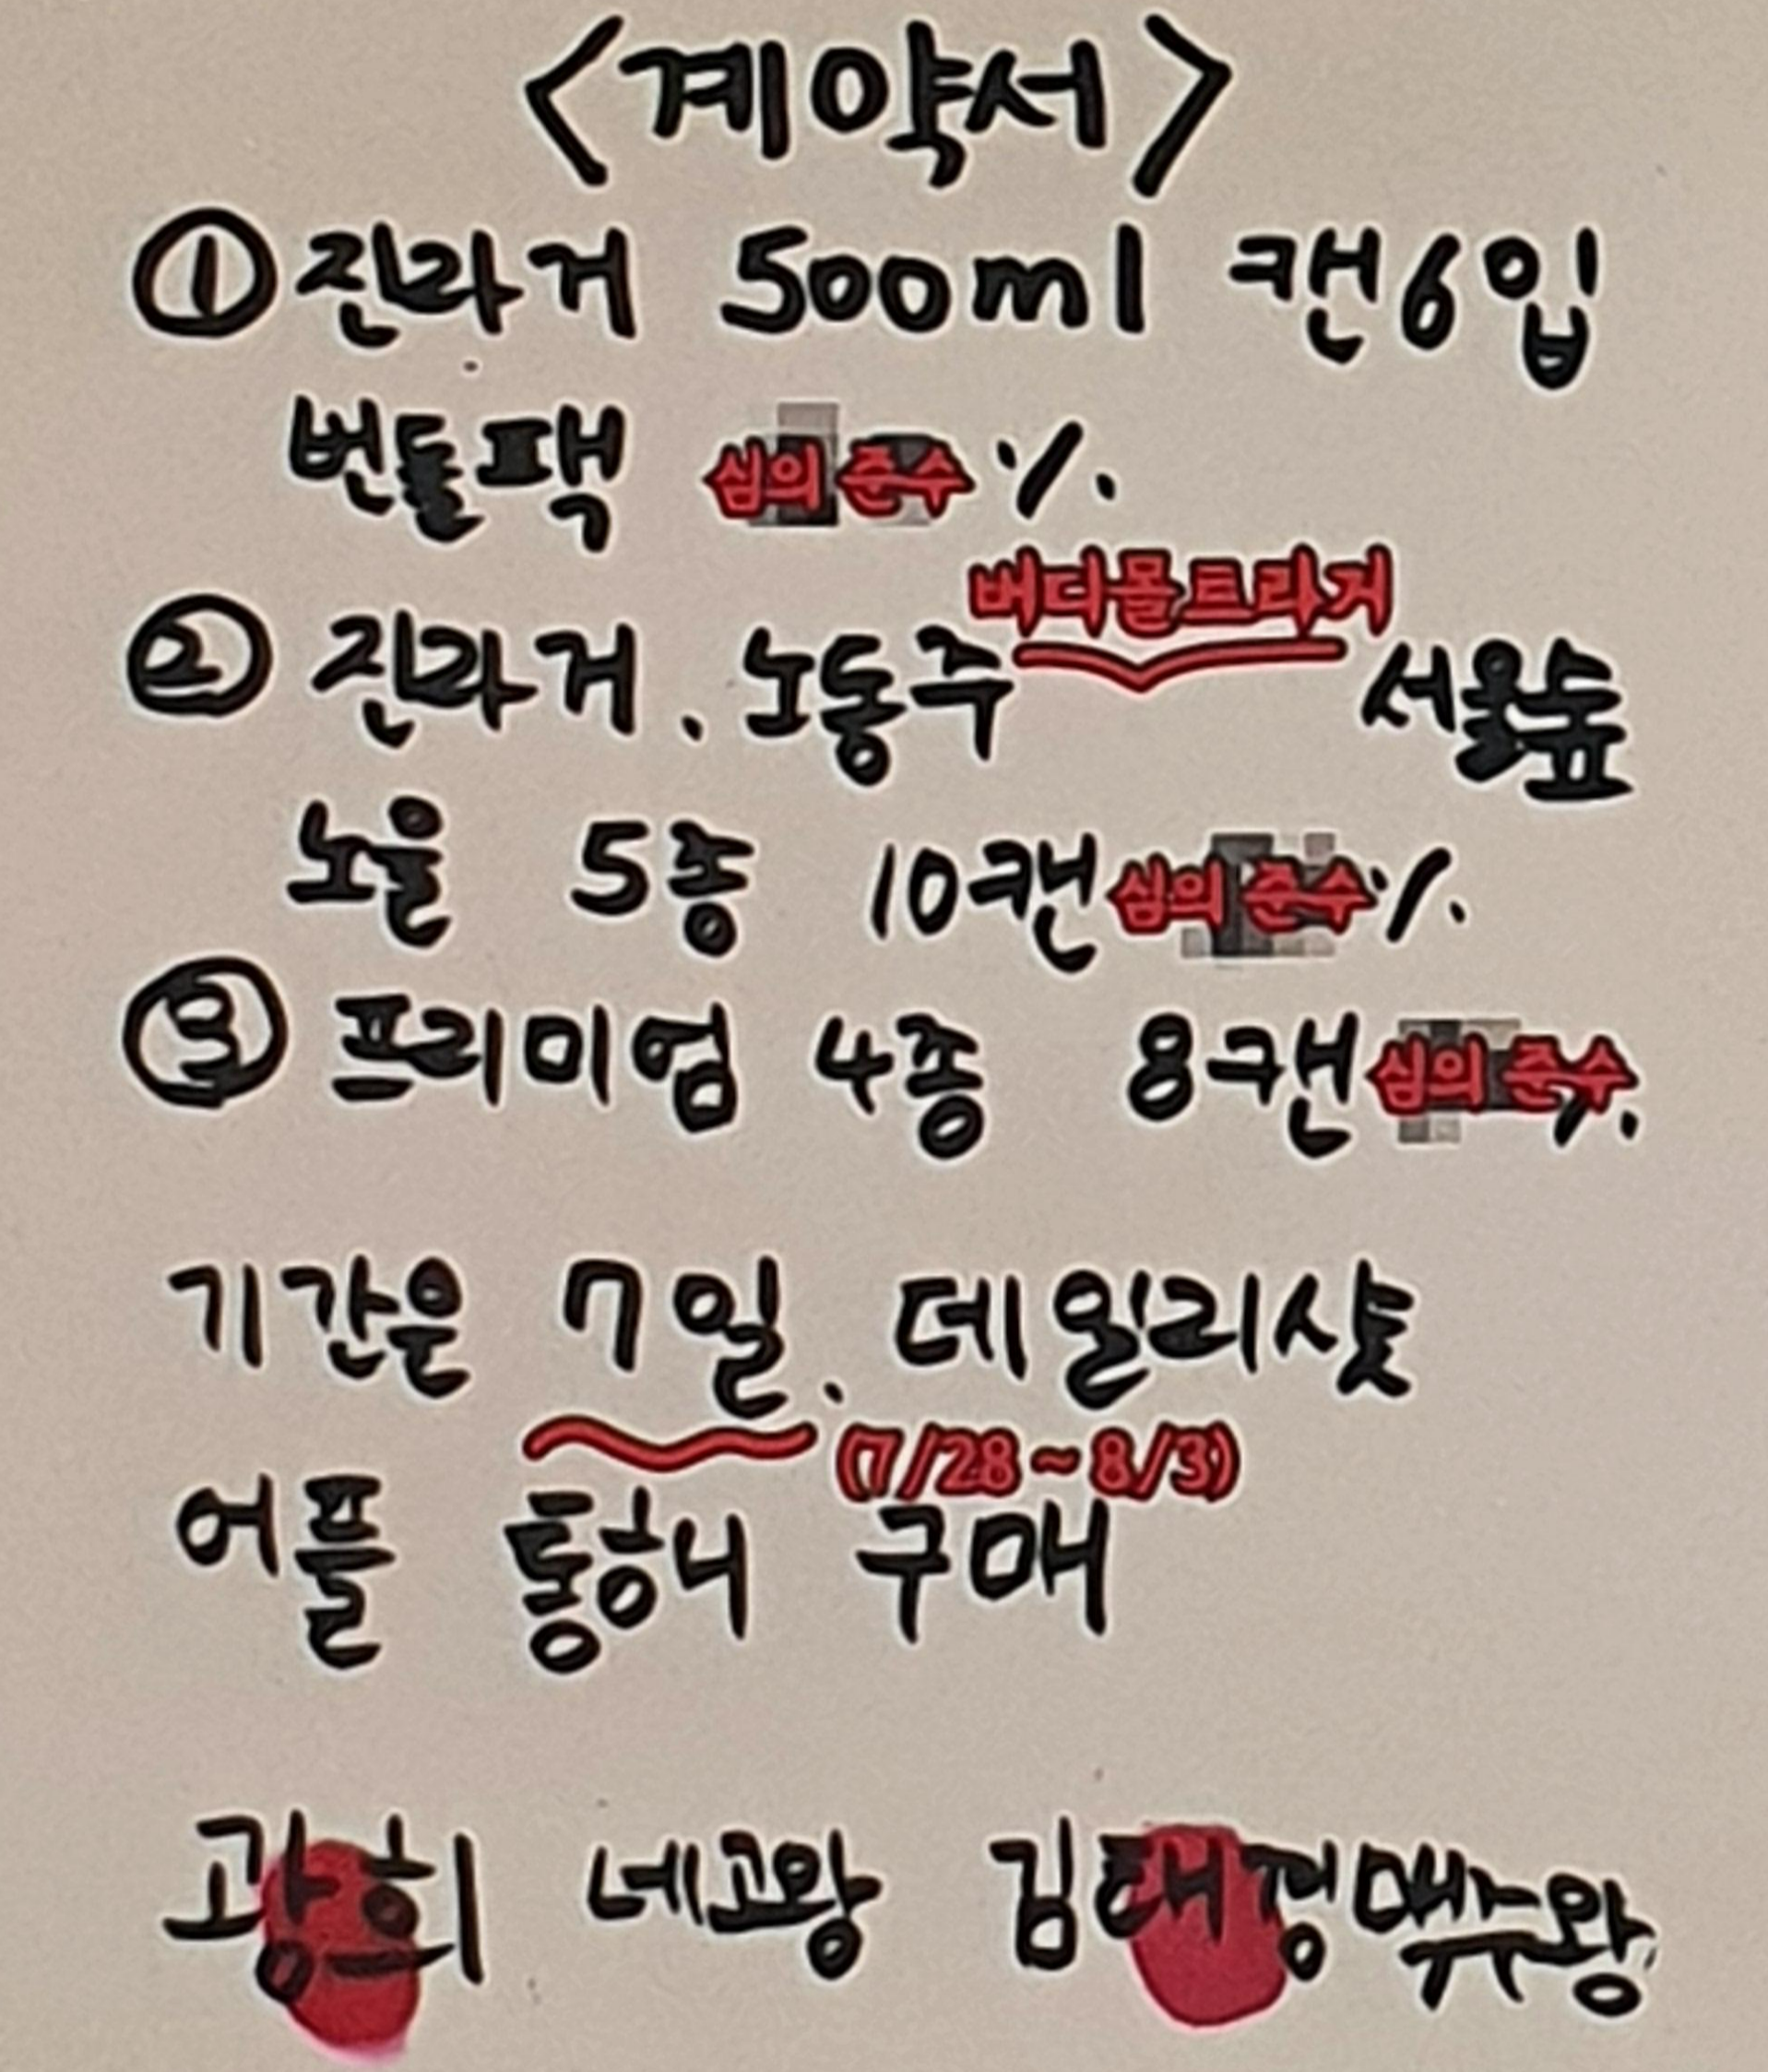 <계약서>
① 진라거 500ml 캔6입
번들팩 심의 준수 %
버디몰트라거
② 진라거. 노동주 서울숲
노을 5종 10캔 심의 준수 %
③ 프리미엄 4종 8캔 심의 준수 %
기간은 7일. 데일리샷
(7/28~8/3)
어플 통해 구매
광희 네고왕 김태경 맥주왕